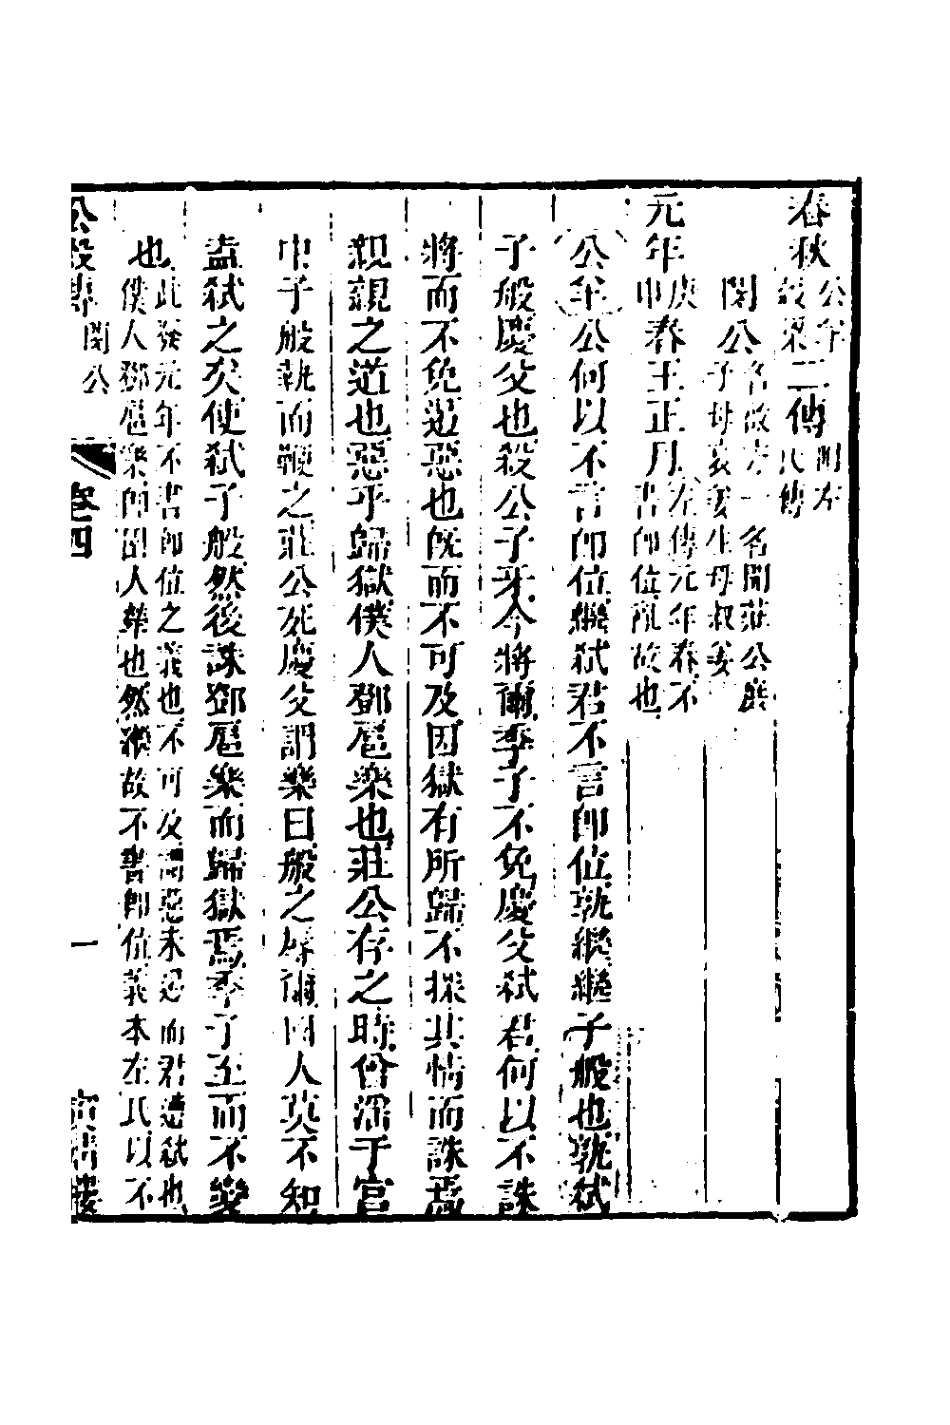 春秋公羊穀梁二傳附左氏傳
閔公名啟方一名開莊公庶子母哀姜生母叔姜
元年庚申春王正月左傳元年春不書即位亂故也
公羊公何以不言即位繼弒君不言即位孰繼繼子般也孰弒
子般慶父也殺公子牙今將爾季子不免慶父弒君何以不誅
將而不免遏惡也既而不可及因獄有所歸不探其情而誅焉
親親之道也惡乎歸獄僕人鄧扈樂也莊公存之時樂曾淫于宮
中子般執而鞭之莊公死慶父謂樂曰般之辱爾國人莫不知
盍弒之矣使弒子般然後誅鄧扈樂而歸獄焉季子至而不變
也此發元年不書即位之義也不可及謂惡未遏而君遭弒也僕人鄧扈樂即圉人犖也然繼故不書即位義本左氏以不
公穀傳
閔公
卷四
一